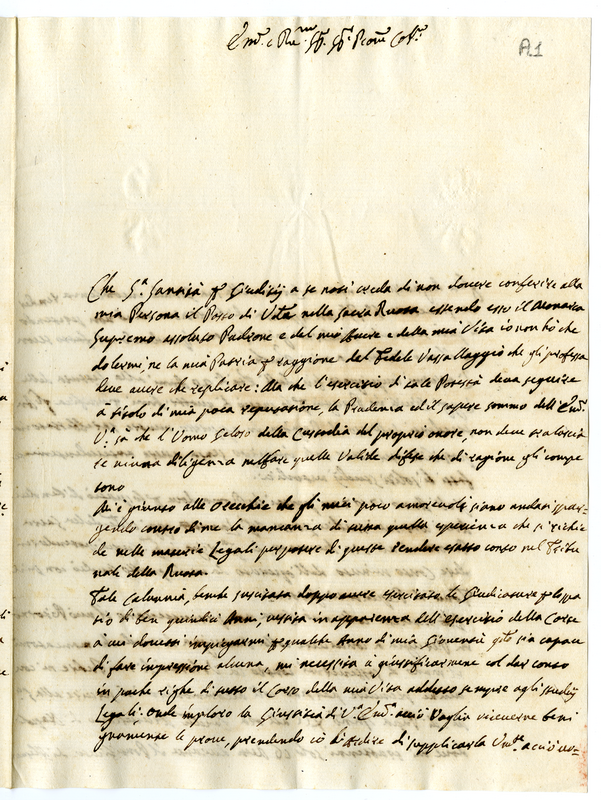 A.1
Che S.ª Santità Giudizij a se noti creda di non dovere conferire alla
mia Persona il Posto di nella Sacra Ruota essendo esso il Monarca
Supremo assoluto Padrone e del mio Avere e della mia Vita io non hò che
dolermi, ne la mia Patria raggione del Fedele Vassallaggio che gli professa
deve avere che replicare: Ma che l'esercizio di tale Potestà deva seguire
à titolo di mia poca reputazione, la Prudenza ed il sapere sommo dell'
V.ª sà che l'Uomo Geloso della Custodia del proprio onore, non deve tralascia
re niuna diligenza nel fare quelle Valide difese che di ragione gli compe
tono
giunto alle Orecchie che gli miei poco amorevoli siano andati spar=
gendo contro di me la mancanza di tutta quella sperienza che si richie
de nelle materie Legali per potere di queste rendere esatto conto nel Tribu
nale della Ruota.
Tale Calunnia, suscitata doppo avere esercitate le Giudicature
tio di ben quindici Anni, vestita in apparenza dell'esercizio della Corte
à cui dovetti impiegarmi qualche Anno di mia Gioventù sia capace
di fare impressione alcuna, mi necessita à giustificarmene col dar conto
in poche righe di tutto il Corso della mia Vita addetto sempre agli studij
Legali. Onde imploro la Giustizia di V.ª acciò Voglia riceverne beni
gnamente le prove, prendendo di supplicarla acciò